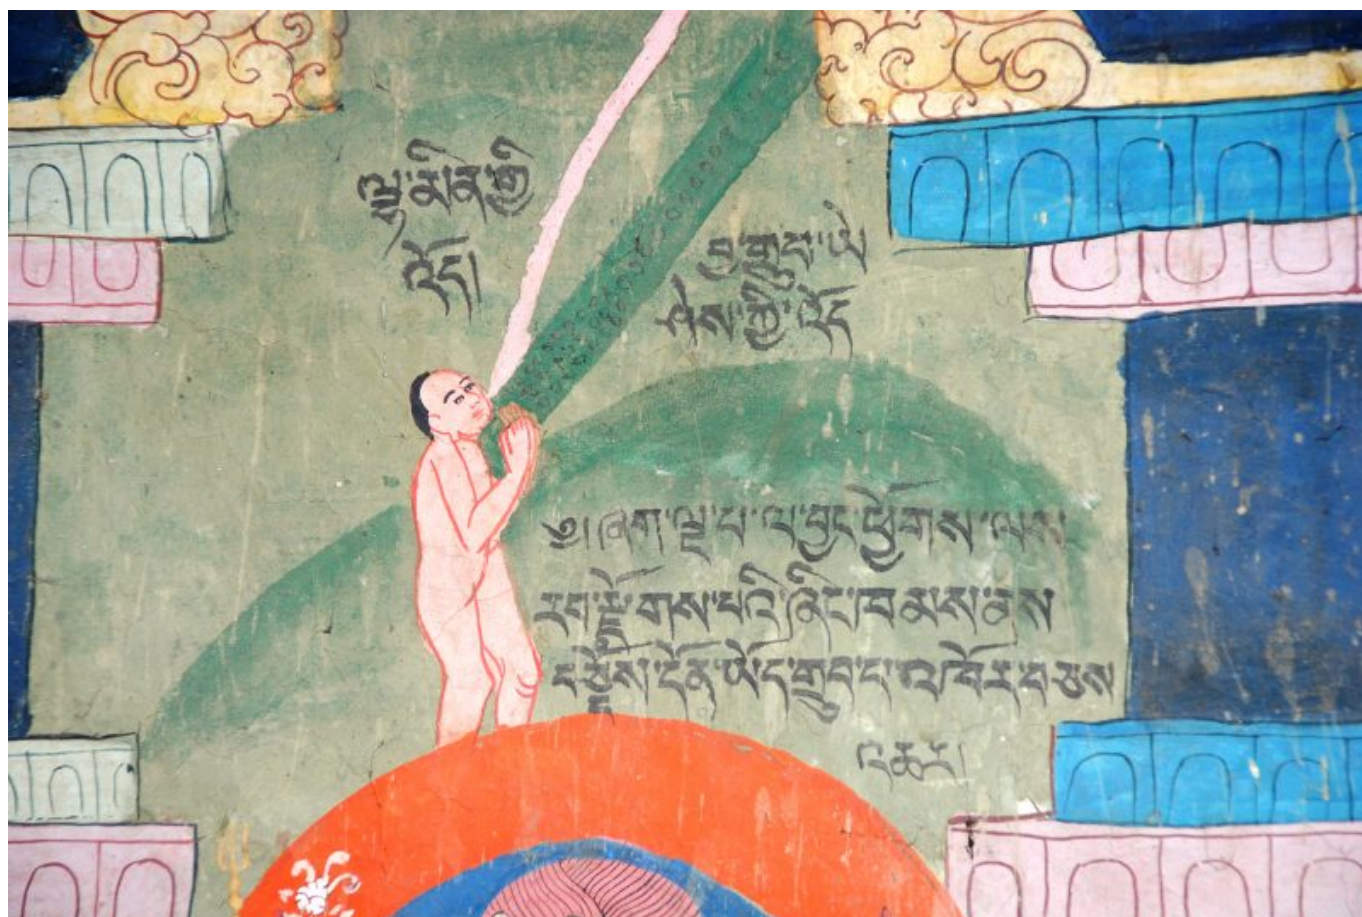 ལྷ་མིན་གྱི
འོད།
བྱ་གྲུབ་ཡེ
ཤེས་ཀྱི་འོད
༄། ཞག་ལྔ་པ་ལ་བྱང་ཕྱོགས་ལས
རབ་རྫོགས་པའི་ཞིང་ཁམས་ནས
དོན་ཡོད་གྲུབ་པ་འཁོར་བཅས
འཆར།